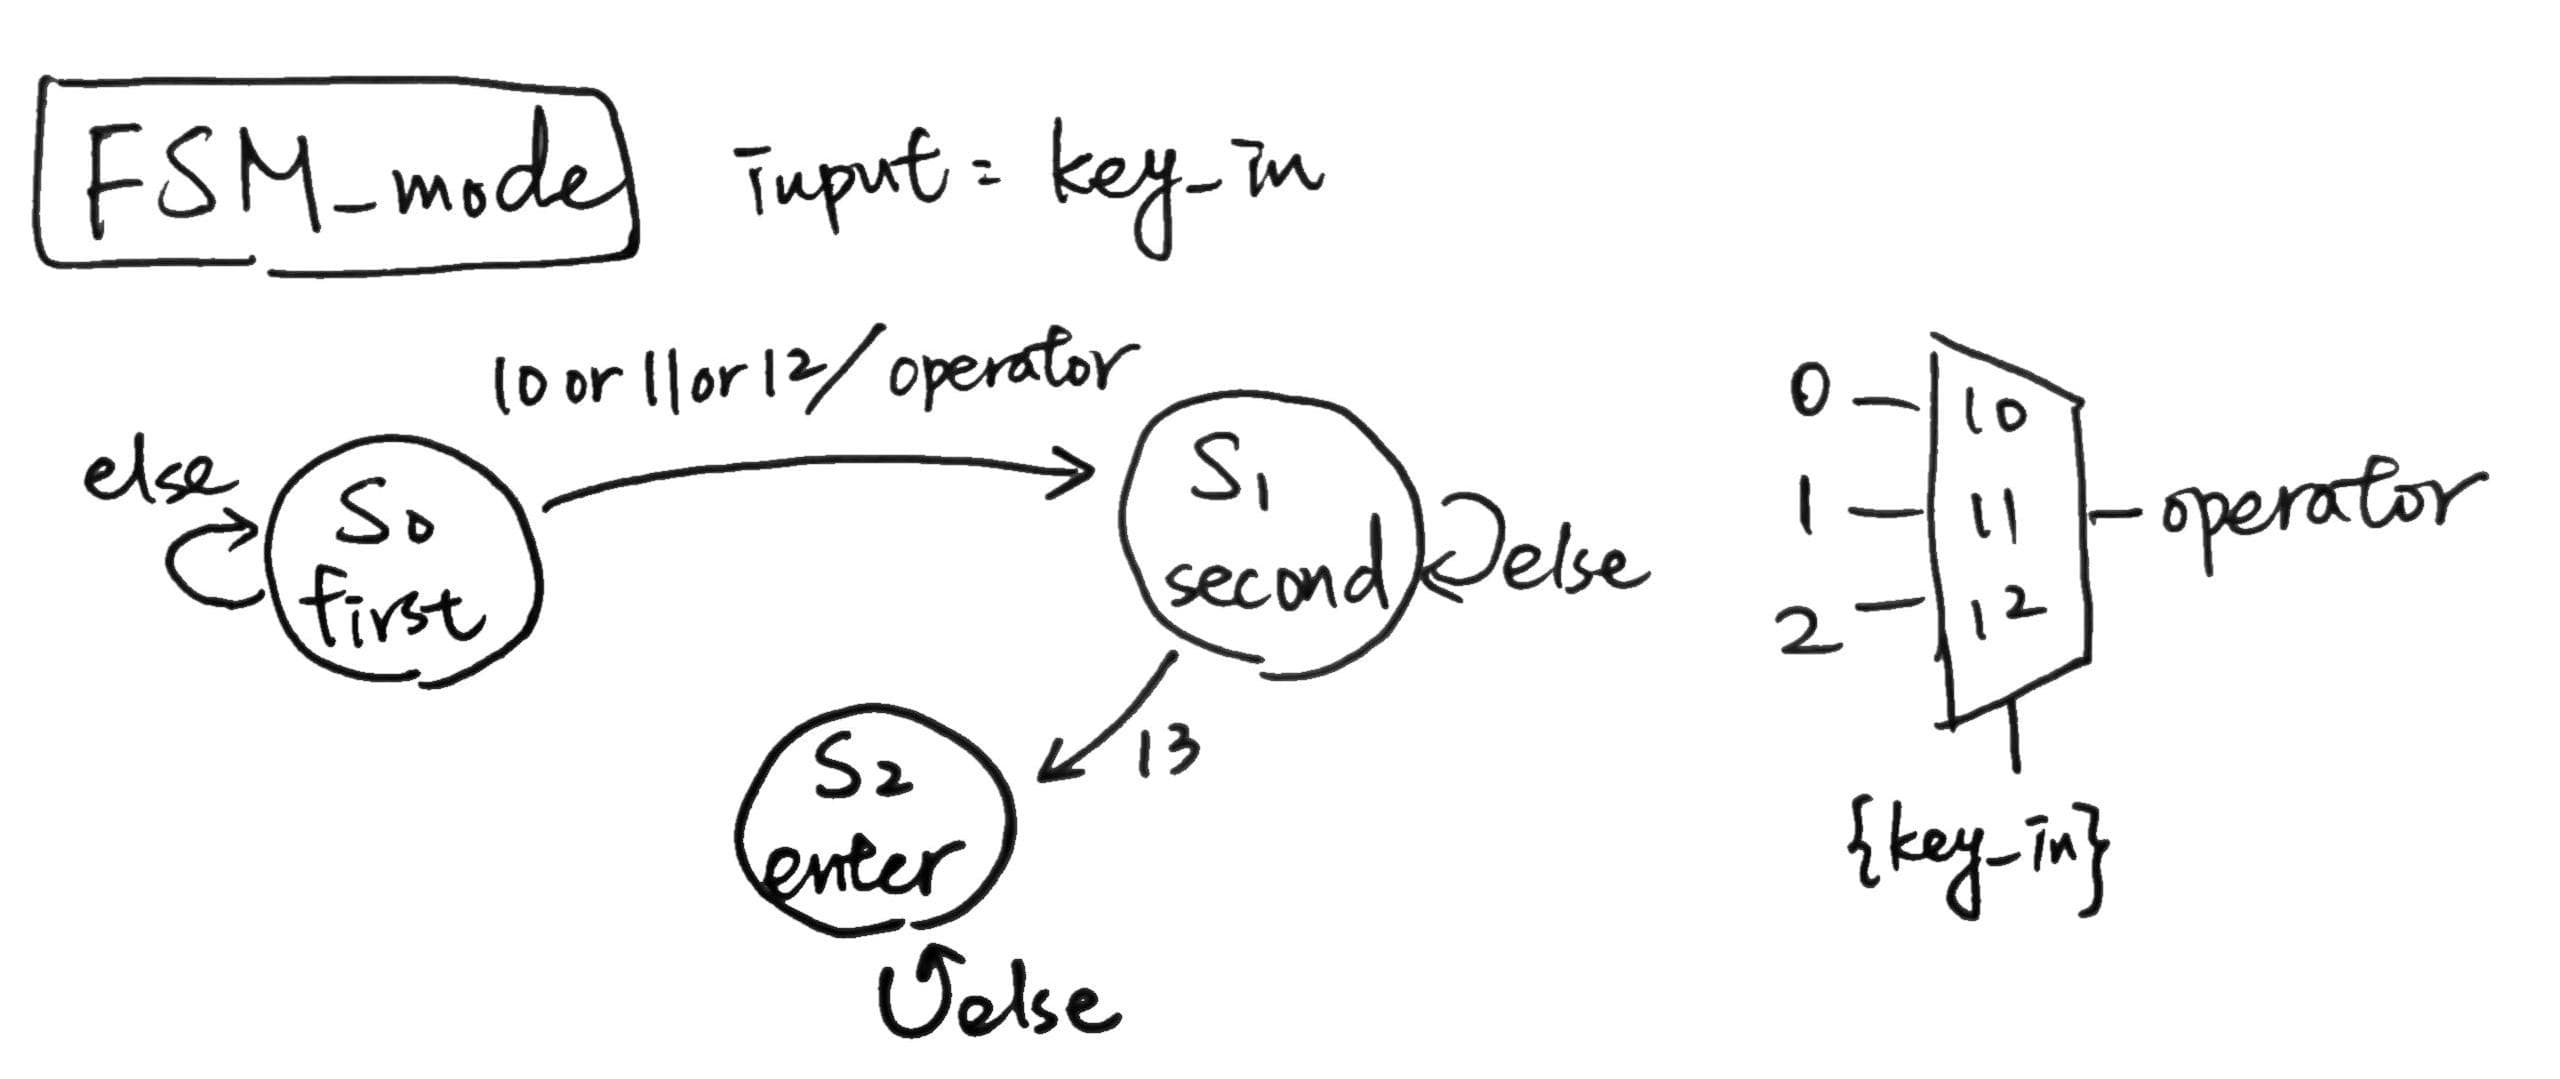 FSM_mode
input = key_in
10 or 11 or 12 / operator
else
S0
first
S1
second
else
13
S2
enter
else
0
1
2
10
11
12
operator
{key_in}